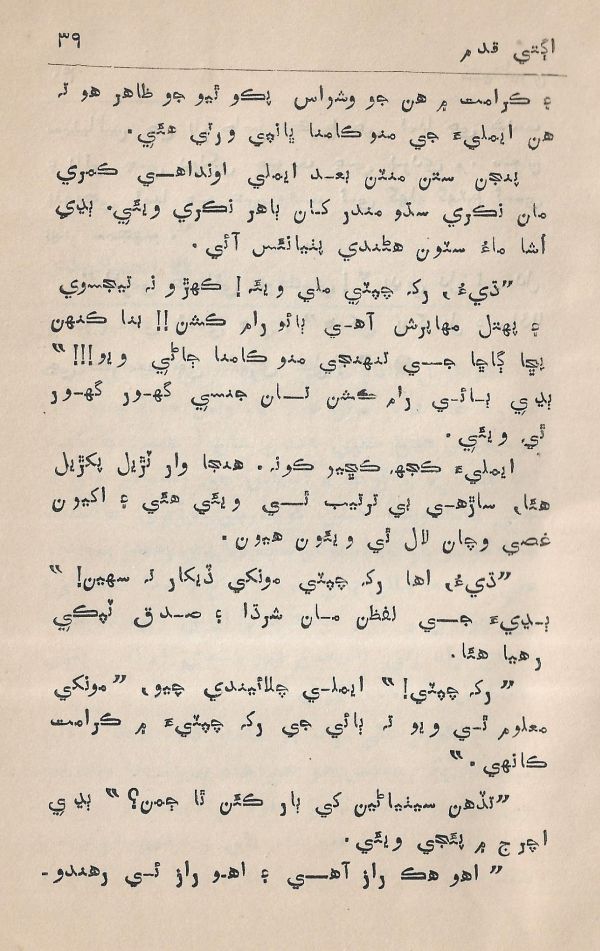 اڳتي قدم ۳۹
۽ ڪرامت ۾ هن جو وشواس پڪو ٿيو جو ظاهر هو ته
هن ايمليءَ جي منو ڪامنا ڀانپي ورتي هئي.
پنجن ستن منٽن بعد ايملي اونداهي ڪمري
مان نڪري سڌو مندر کان ٻاهر نڪري ويئي. ٻڍي
آشا ماءُ سٽون هڻندي پٺيانئس آئي.
”ڌيءُ، رکہ چپٽي ملي ويئہ! کهڙو نہ تيجسوي
۽ پهتل مهاپرش آهي ٻائو رام ڪشن!! بنا ڪنهن
پڇا ڳاڇا جي تنهنجي منو ڪامنا ڄاڻي ويو!!!“
ٻڍي ٻائي رام ڪشن تان جنسي گهور گهور
ٿي ويئي.
ايمليءَ ڪجهہ ڪڇيو ڪونہ. هنجا وار ٽڙيل پکڙيل
هئا، ساڙهي بي ترتيب ٿي ويئي هئي ۽ اکيون
غصي وچان لال ٿي ويئون هيون.
”ڌيءُ، اها رکہ چپٽي مونکي ڏيکار تہ سهين!“
ٻڍيءَ جي لفظن مان شرڌا ۽ صدق ٽپڪي
رهيا هئا.
”رکہ چپٽي!“ ايملي چلائيندي چيو، ”مونکي
معلوم ٿي ويو تہ ٻائي جي رکہ چپٽيءَ ۾ ڪرامت
ڪانهي.“
”تڏهن سيٺياڻين کي ٻار ڪئن ٿا ڄمن؟“ ٻڍي
اچرج ۾ پئجي ويئي.
”اهو هڪ راز آهي ۽ اهو راز ئي رهندو۔